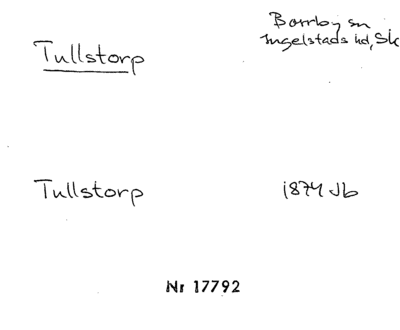 Borrby sn
Tullstorp
Ingelstads hd, Sk
Tullstorp 1874 Jb
Nr 17792